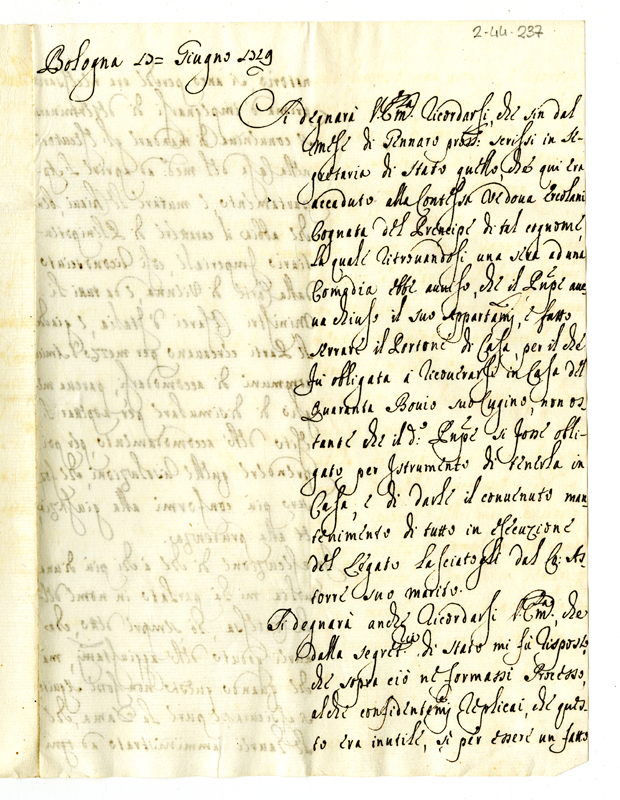 2-44-237
Bologna 13= Giugno 1729
Si degnarà V: Em:za ricordarsi, che sin dal
mese di Gennaro pross:o scrissi in se-
gretaria di Stato quello, che qui era
accaduto alla Contessa Vedova Ercolani
Cognata del Principe di tal cognome,
la quale ritrovandosi una sera ad una
Comedia ebbe auuiso, che il Pnpe aue-
ua chiuso il suo Appartam:, e fatto
serrare il Portone di Casa, per il che
fù obligata à ricouerarsi in Casa del
Quaranta Bouio suo Cugino, non os-
tante che il d:o Pnpe si fosse obli-
gato per Istrumento di tenerla in
Casa, e di darle il conuenuto man-
tenimento di tutto in essecuzione
del Legato lasciatogli dal Co: As-
torre suo marito.
Si degnarà anche ricordarsi V: Em:za, che
dalla segret:ria di Stato mi fù risposto,
che sopra ciò ne formassi Processo,
al che confidentem: replicai, che ques-
to era inutile, sì per essere un fatto